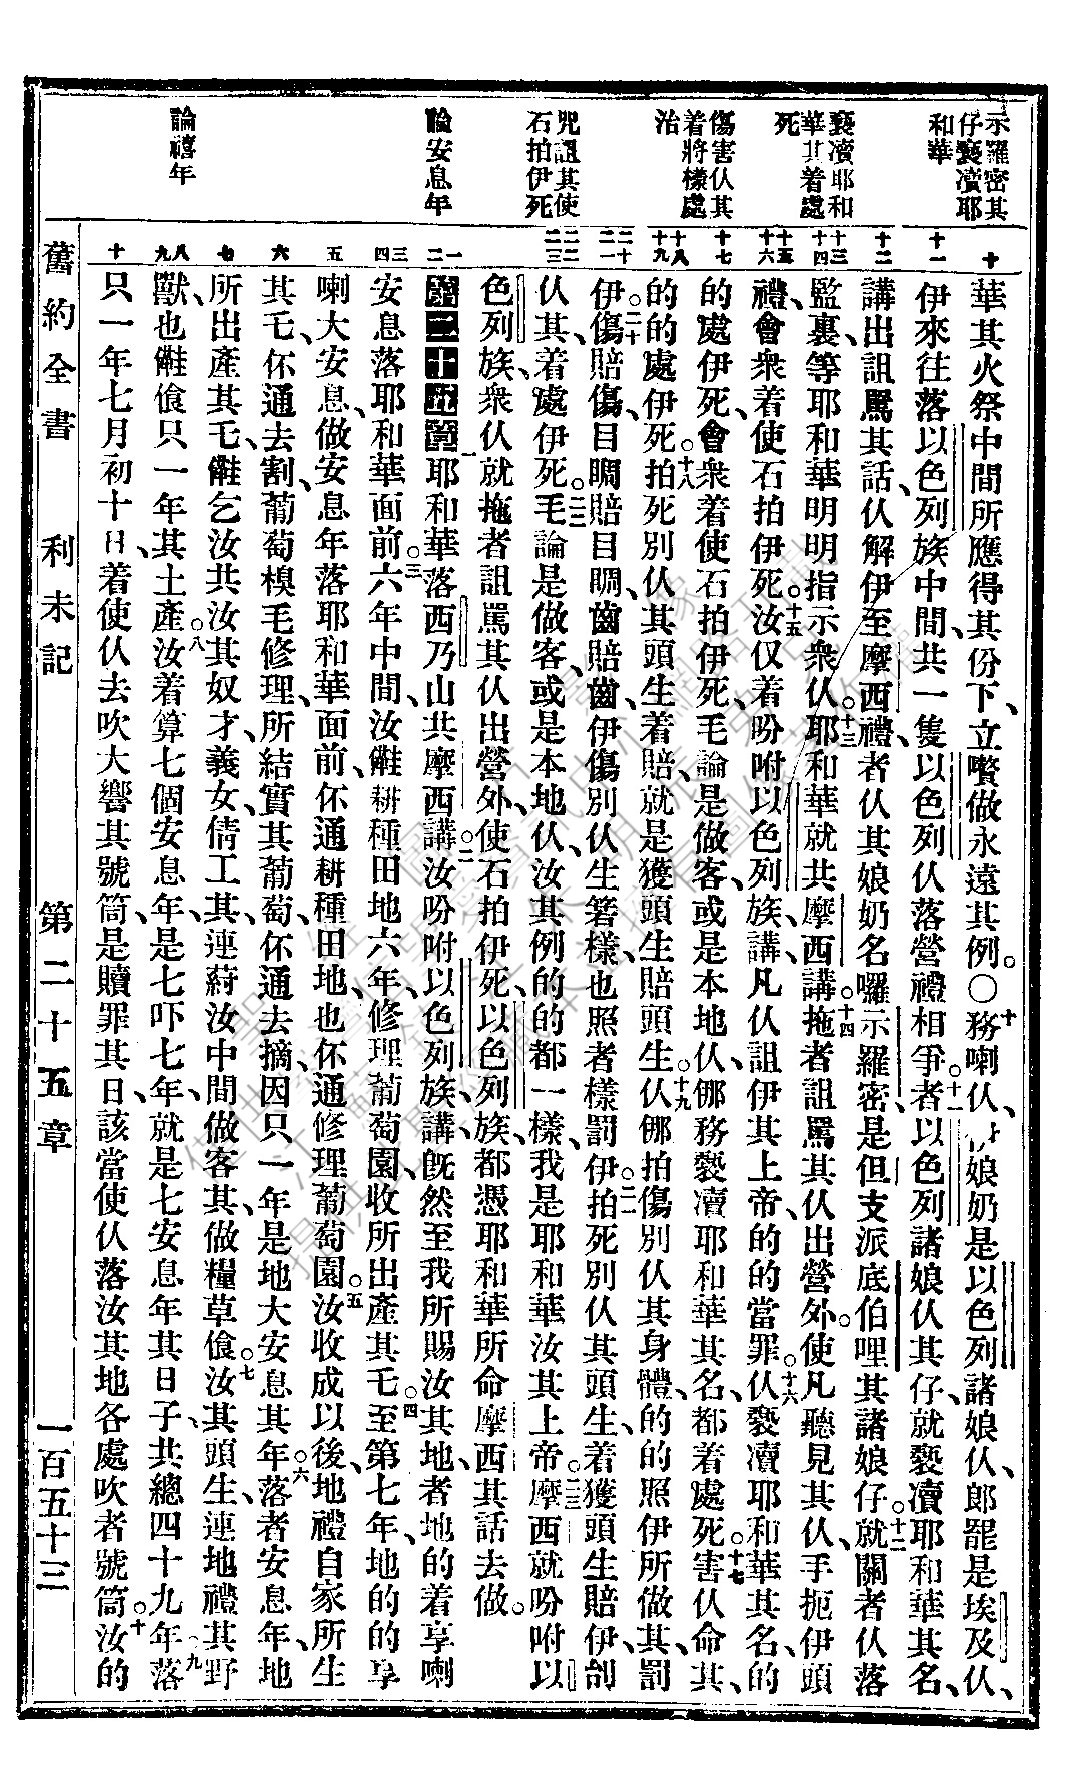 示羅密其
仔褻瀆耶
和華
褻瀆耶和
華其着處
死
傷害仈其
着將樣處
治
咒詛其使
石拍伊死
論安息年
論禧年
十
十一
十二
十三
十四
十五
十六
十七
十八
十九
二十
二一
二二
二三
一
二
三
四
五
六
七
八
九
十
華其火祭中間所應得其份下、立嚽做永遠其例。○十務喇仈、娘奶是以色列諸娘仈、郎罷是埃及仈、
伊來往落以色列族中間、共一隻以色列仈落營禮相爭。十一者以色列諸娘仈其仔、就褻瀆耶和華其名、
講出詛罵其話、仈解伊至摩西禮、者仈其娘奶名囉示羅密、是但支派底伯哩其諸娘仔。十二就關者仈落
監裏、等耶和華明明指示衆仈。十三耶和華就共摩西講、十四拖者詛罵其仈出營外。使凡聽見其仈、手扼伊頭
禮、會衆着使石拍伊死。十五汝仅着吩咐以色列族講、凡仈詛伊其上帝、的的當罪。十六仈褻瀆耶和華其名、的
的處伊死、會衆着使石拍伊死、毛論是做客、或是本地仈、倻務褻瀆耶和華其名、都着處死。十七害仈命其、
的的處伊死。十八拍死別仈其頭生着賠、就是獲頭生賠頭生。十九仈倻拍傷別仈其身體、的的照伊所做其罰
伊。二十傷賠傷、目睭賠目睭、齒賠齒、伊傷別仈生箬樣、也照者樣罰伊。二一拍死別仈其頭生、着獲頭生賠伊、刣
仈其、着處伊死。二二毛論是做客、或是本地仈、汝其例的的都一樣、我是耶和華汝其上帝。二三摩西就吩咐以
色列族、衆仈就拖者詛罵其仈出營外、使石拍伊死、以色列族、都憑耶和華所命摩西其話去做。
第二十五章一耶和華落西乃山共摩西講。二汝吩咐以色列族講、既然至我所賜汝其地、者地的着享喇
安息落耶和華面前。三六年中間、汝𣍐耕種田地、六年、修理葡萄園、收所出產其乇。四至第七年、地的的享
喇大安息、做安息年落耶和華面前、伓通耕種田地、也伓通修理葡萄園。五汝收成以後、地禮自家所生
其乇、伓通去割、葡萄模毛修理、所結實其葡萄、伓通去摘、因只一年是地大安息其年。六落者安息年、地
所出產其乇、𣍐乞汝共汝其奴才、義女、倩工其、連寄汝中間做客其、做糧草食。七汝其頭生、連地禮其野
獸、也𣍐食只一年其土產。八汝着算七個安息年、是七吓七年、就是七安息年其日子、共總四十九年。九落
只一年七月初十日、着使仈去吹大響其號筒、是贖罪其日、該當使仈落汝其地各處吹者號筒。十汝的
舊約全書　利未記　第二十五章　一百五十三